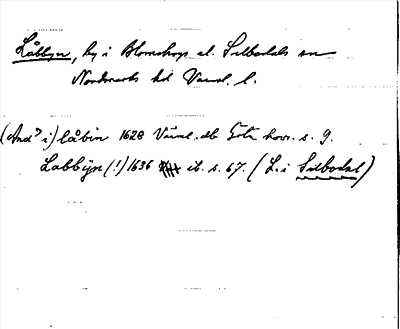 Låbbyn, by i Blomskogs el. Silbodals sn
Nordmarks hd Värml. l.
(And⁹ i) låbin 1628 Värml. db Göta hovr. s. 9.
Labbÿn (!) 1636 ib. s. 67. (L. i Silbodal)